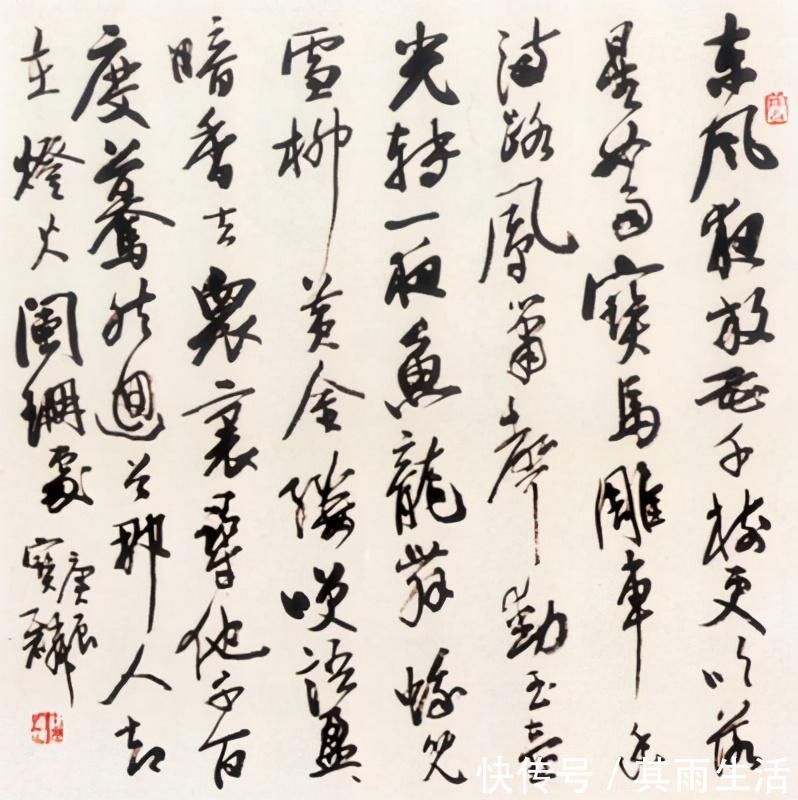 東風夜放花千樹更吹落
星如雨寶馬雕車香
滿路鳳簫聲動玉壺
光轉一夜魚龍舞蛾兒
雪柳黃金縷咲語盈
暗香去眾裏尋他千百
度驀然迴首那人却
在燈火闌珊處
庚辰
寶麟
快传号 / 其雨生活